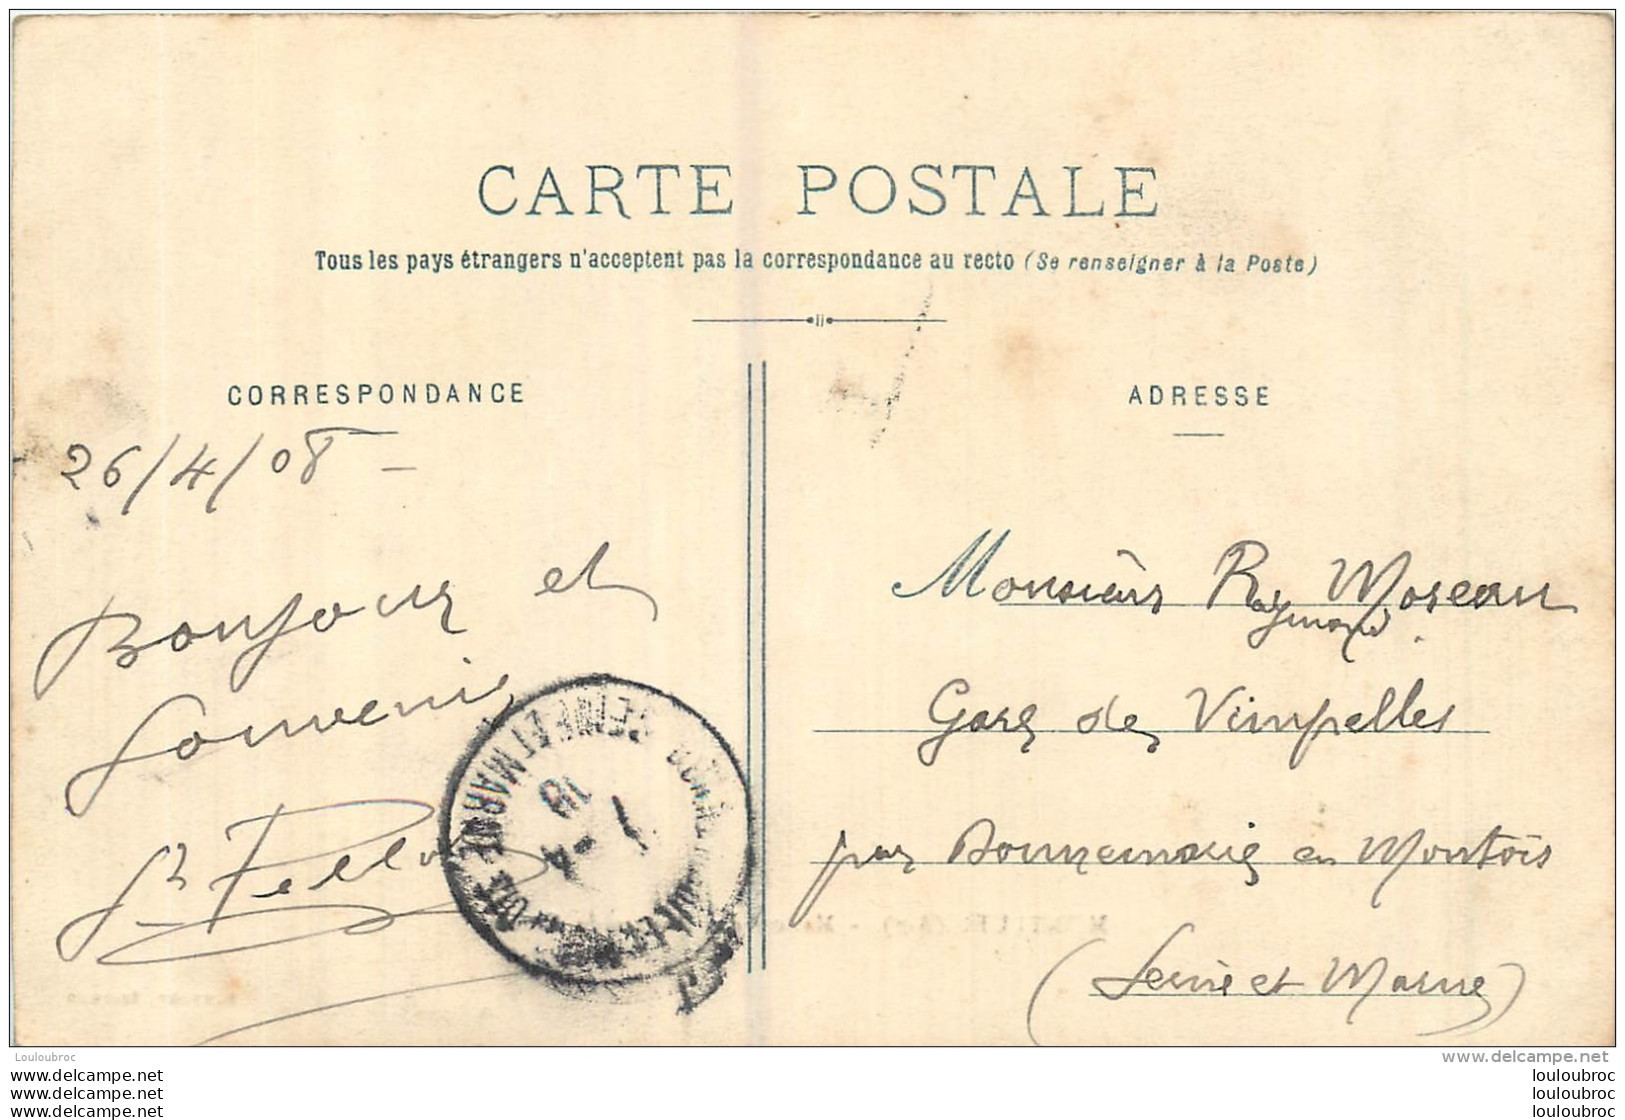 CARTE POSTALE
Tous les pays étrangers n'acceptent pas la correspondance au recto (Se renseigner à la Poste)
CORRESPONDANCE
26/4/08 -
Bonjour et
Souvenir
ADRESSE
Monsieur R. Moreau
Raymond
Gare de Vimpelles
par Donnemarie en Montois
(Seine et Marne)
SEINE ET MARNE
18
1 - 4
Louloubroc
www.delcampe.net
www.delcampe.net
www.delcampe.net
www.delcampe.net
louloubroc
louloubroc
louloubroc